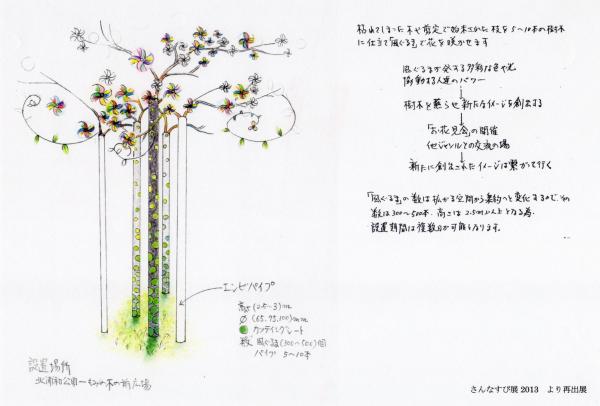 枯れてしまった木や剪定で始末された枝を5〜10本の樹木
に仕立て「風ぐるま」で花を咲かせます
風ぐるまが発する多彩な色や光
協動する人達のパワー
樹木を蘇らせ新たなイメージを創出する
「お花見会」の開催
他ジャンルとの交流の場
新たに創出されたイメージは繋がって行く
「風ぐるま」の数は拡がる空間から集約へと変化するので、その
数は300〜500本. 高さは 2.5m以上となる為.
設置期間は複数日が可能となります。
エンビパイプ
高さ (2.5〜3)m
φ (65.75.100)mm
カッティングシート
数 風ぐるま(300〜500)個
パイプ 5〜10本
設置場所
公園
木の前広場
さんなすび展 2013 より再出展